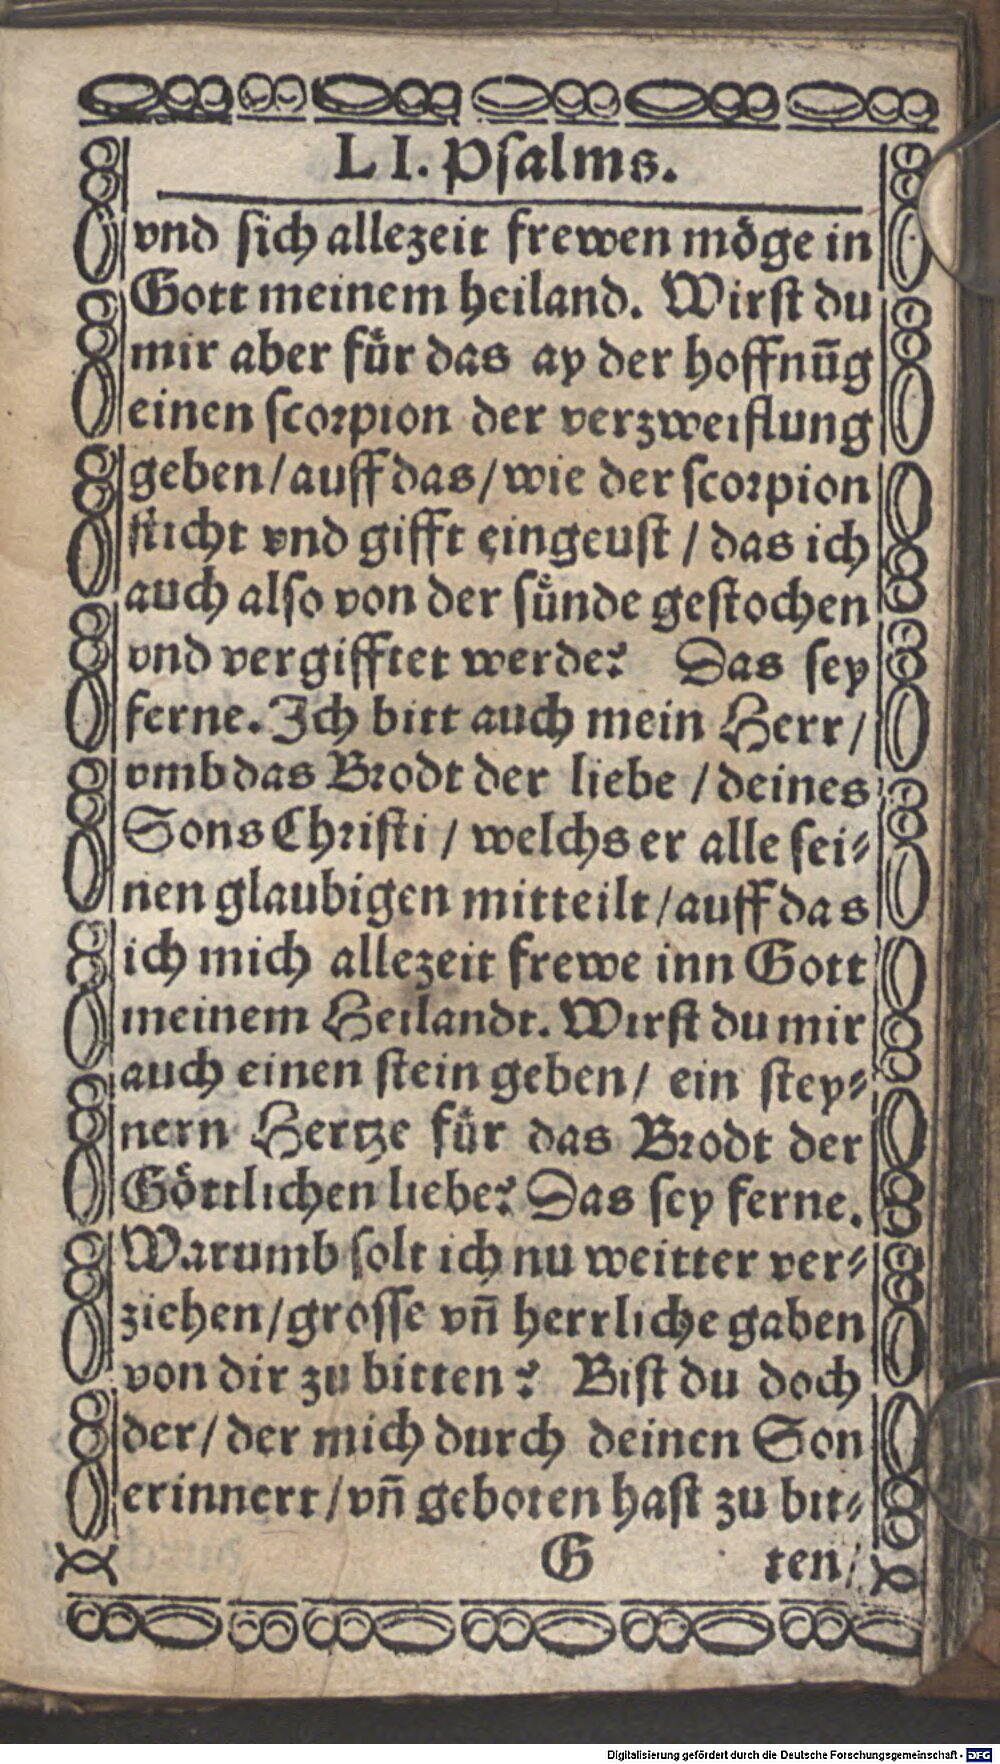 LI. Psalms.
vnd sich allezeit frewen möge in
Gott meinem heiland. Wirst du
mir aber fuͤr das ay der hoffnūg
einen scorpion der verzweiflung
geben/auff das/wie der scorpion
sticht vnd gifft eingeust / das ich
auch also von der suͤnde gestochen
vnd vergifftet werde? Das sey
ferne. Ich bitt auch mein Herr/
vmb das Brodt der liebe / deines
Sons Christi / welchs er alle sei⸗
nen glaubigen mitteilt/auff das
ich mich allezeit frewe inn Gott
meinem Heilandt. Wirst du mir
auch einen stein geben/ ein stey⸗
nern Hertze fuͤr das Brodt der
Göttlichen liebe? Das sey ferne.
Warumb solt ich nu weitter ver⸗
ziehen/grosse vn̄ herrliche gaben
von dir zu bitten? Bist du doch
der/der mich durch deinen Son
erinnert/vn̄ geboten hast zu bit⸗
G ten/
Digitalisierung gefördert durch die Deutsche Forschungsgemeinschaft - DFG